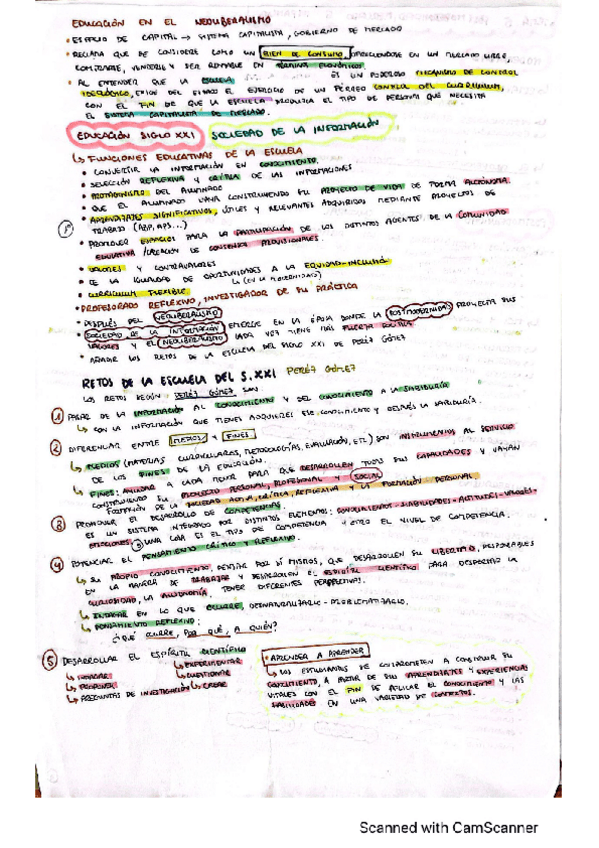 EDUCACIÓN EN EL NEOLIBERALISMO
• ESPACIO DE CAPITAL → SISTEMA CAPITALISTA, GOBIERNO DE MERCADO
• RECLAMA QUE SE CONSIDERE COMO UN BIEN DE CONSUMO, OFRECIÉNDOSE EN UN MERCADO LIBRE,
COMPRARSE, VENDERSE Y SER RENTABLE EN TÉRMINOS ECONÓMICOS.
• AL ENTENDER QUE LA ESCUELA ES UN PODEROSO MECANISMO DE CONTROL
IDEOLÓGICO, EXIGE DEL ESTADO EL EJERCICIO DE UN FÉRREO CONTROL DEL CURRICULUM,
CON EL FIN DE QUE LA ESCUELA PRODUZCA EL TIPO DE PERSONA QUE NECESITA
EL SISTEMA CAPITALISTA DE MERCADO.
EDUCACIÓN SIGLO XXI SOCIEDAD DE LA INFORMACIÓN
↳ FUNCIONES EDUCATIVAS DE LA ESCUELA
• CONVERTIR LA INFORMACIÓN EN CONOCIMIENTO.
• SELECCIÓN REFLEXIVA Y CRÍTICA DE LAS INFORMACIONES
• PROTAGONISMO DEL ALUMNADO
• QUE EL ALUMNADO VAYA CONSTRUYENDO SU PROYECTO DE VIDA DE FORMA AUTÓNOMA
• APRENDIZAJES SIGNIFICATIVOS, ÚTILES Y RELEVANTES ADQUIRIDOS MEDIANTE PROYECTOS DE
TRABAJO (ABP, APS...)
• PROMOVER ESPACIOS PARA LA PARTICIPACIÓN DE LOS DISTINTOS AGENTES DE LA COMUNIDAD
EDUCATIVA /CREACIÓN DE CONSENSOS PROVISIONALES.
• VALORES Y CONTRAVALORES
• DE LA IGUALDAD DE OPORTUNIDADES A LA EQUIDAD-INCLUSIÓN
↳ (EN LA MODERNIDAD)
• CURRICULUM FLEXIBLE
• PROFESORADO REFLEXIVO, INVESTIGADOR DE SU PRÁCTICA
• DESPUÉS DEL NEOLIBERALISMO
• SOCIEDAD DE LA INFORMACIÓN EMERGE EN LA ÉPOCA DONDE LA POSTMODERNIDAD PROYECTA SUS
VALORES Y EL NEOLIBERALISMO CADA VEZ TIENE MÁS FUERZA POLÍTICA
• AÑADIR LOS RETOS DE LA ESCUELA DEL SIGLO XXI DE PÉREZ GÓMEZ
RETOS DE LA ESCUELA DEL S.XXI PÉREZ GÓMEZ
LOS RETOS SEGÚN PÉREZ GÓMEZ SON:
① PASAR DE LA INFORMACIÓN AL CONOCIMIENTO Y DEL CONOCIMIENTO A LA SABIDURÍA
↳ CON LA INFORMACIÓN QUE TIENES ADQUIERES ESE CONOCIMIENTO Y DESPUÉS LA SABIDURÍA.
② DIFERENCIAR ENTRE MEDIOS Y FINES
↳ MEDIOS (MATERIAS CURRICULARES, METODOLOGÍAS, EVALUACIÓN, ETC) SON INSTRUMENTOS AL SERVICIO
DE LOS FINES DE LA EDUCACIÓN.
↳ FINES: AYUDAR A CADA PARA QUE DESARROLLEN TODAS SUS CAPACIDADES Y VAYAN
CONSTRUYENDO SU PROYECTO PERSONAL, PROFESIONAL Y SOCIAL
ACTIVA, CRÍTICA, REFLEXIVA Y LA FORMACIÓN PERSONAL
③ PROMOVER EL DESARROLLO DE COMPETENCIAS
ES UN SISTEMA INTEGRADO POR DISTINTOS ELEMENTOS: CONOCIMIENTOS-HABILIDADES-ACTITUDES-VALORES-
EMOCIONES. UNA COSA ES EL TIPO DE COMPETENCIA Y OTRO EL NIVEL DE COMPETENCIA.
④ POTENCIAR EL PENSAMIENTO CRÍTICO Y REFLEXIVO.
↳ SU PROPIO CONOCIMIENTO, PENSAR POR SÍ MISMOS, QUE DESARROLLEN SU LIBERTAD, RESPONSABLES
EN LA MANERA DE TRABAJAR Y DESARROLLEN EL ESPÍRITU CIENTÍFICO PARA DESPERTAR LA
CURIOSIDAD, LA AUTONOMÍA. TENER DIFERENTES PERSPECTIVAS.
↳ INDAGAR EN LO QUE OCURRE, DESNATURALIZARLO-PROBLEMATIZARLO.
↳ PENSAMIENTO REFLEXIVO:
¿QUÉ OCURRE, POR QUÉ, A QUIÉN?
⑤ DESARROLLAR EL ESPÍRITU CIENTÍFICO
↳ INDAGAR ↳ EXPERIMENTAR
↳ PROPONER ↳ CUESTIONAR
↳ PREGUNTAS DE INVESTIGACIÓN ↳ CREAR
• APRENDER A APRENDER
↳ LOS ESTUDIANTES SE COMPROMETEN A CONSTRUIR SU
CONOCIMIENTO, A PARTIR DE SUS APRENDIZAJES Y EXPERIENCIAS
VITALES CON EL FIN DE APLICAR EL CONOCIMIENTO Y LAS
HABILIDADES EN UNA VARIEDAD DE CONTEXTOS.
Scanned with CamScanner